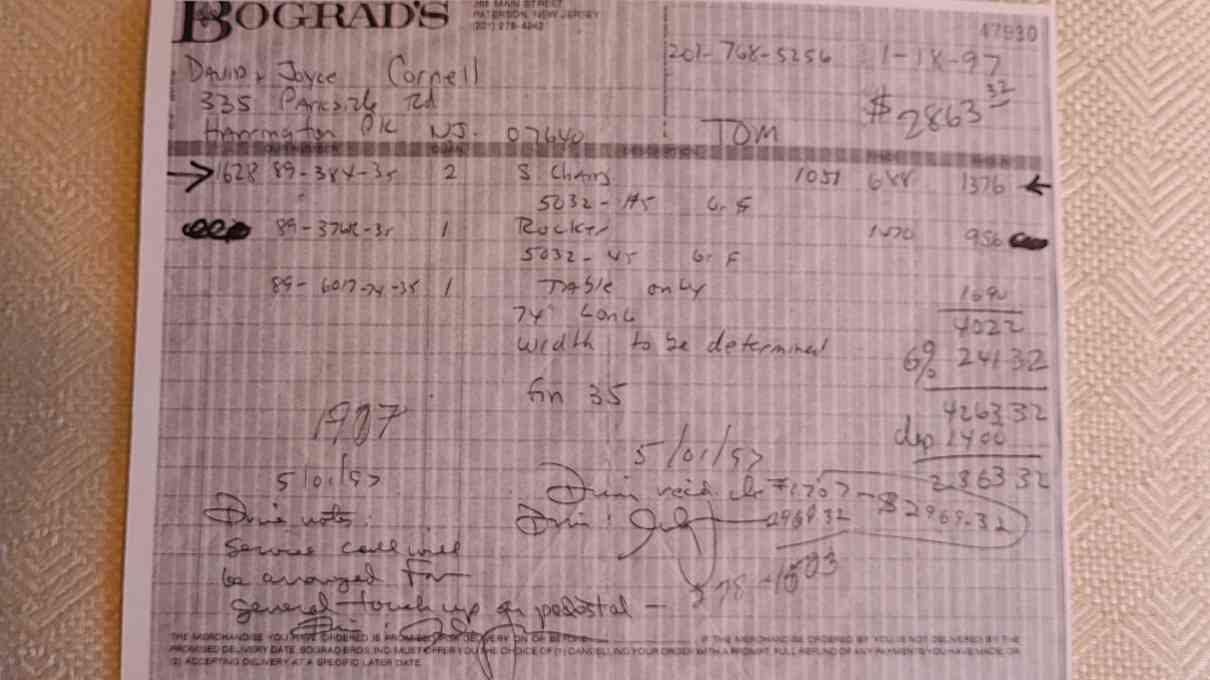 BOGRAD'S
288 MAIN STREET
PATERSON, NEW JERSEY
(201) 278-4242
47930
201-768-5256 1-18-97
DAVID & Joyce Cornell
335 Parkside Rd
$2863 32
Harrington PK NJ. 07640 TOM
1628 89-384-35 2 S Chairs 1051 688 1376
5032-45 Gr F
89-376R-35 1 Rocker 956
5032-45 Gr F
89-6017-74-35 1 TABle only 1690
74" Long 4022
width to be determined 6% 241 32
fin 35 4263.32
1907 dep 1400
5/01/97 2863 32
5/01/97
recd. ck #1707 - $2969.32
notes: 2969.32
Service call will
be arranged for
general touch up on pedestal -
THE MERCHANDISE YOU HAVE ORDERED IS PROMISED FOR DELIVERY ON OR BEFORE IF THE MERCHANDISE ORDERED BY YOU IS NOT DELIVERED BY THE
PROMISED DELIVERY DATE, BOGRAD BROS, INC. MUST OFFER YOU THE CHOICE OF (1) CANCELLING YOUR ORDER WITH A PROMPT, FULL REFUND OF ANY PAYMENTS YOU HAVE MADE, OR
(2) ACCEPTING DELIVERY AT A SPECIFIC LATER DATE.